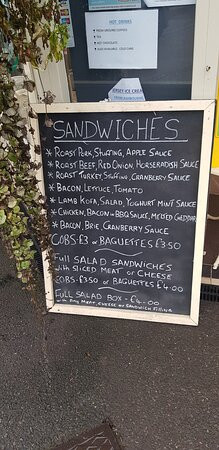 HOT DRINKS
FRESH GROUND COFFEE
TEA
HOT CHOCOLATE
JERSEY ICE CREAM
SANDWICHÈS
* ROAST PORK, STUFFING, APPLE SAUCE
* ROAST BEEF, RED ONION, HORSERADISH SAUCE
* ROAST TURKEY STUFFING, CRANBERRY SAUCE
* BACON, LETTUCE, TOMATO
* LAMB KOFA, SALAD, YOGHURT MINT SAUCE
* CHICKEN, BACON OR BBQ SAUCE, MELTED CHEDDAR
* BACON, BRIE, CRANBERRY SAUCE
COBS £3 OR BAGUETTES £3.50
FULL SALAD SANDWICHES
WITH SLICED MEAT OR CHEESE
COBS £3.50 OR BAGUETTES £4.00
FULL SALAD BOX - £4.00
WITH ANY MEAT, CHEESE OR SANDWICH FILLING